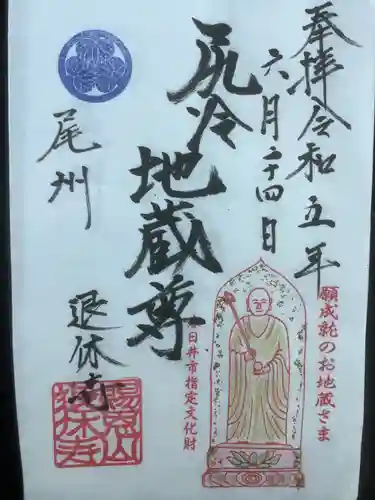 奉拝令和五年
六月二十四日
尻冷地蔵尊
尾州
退休寺
願成就のお地蔵さま
春日井市指定文化財